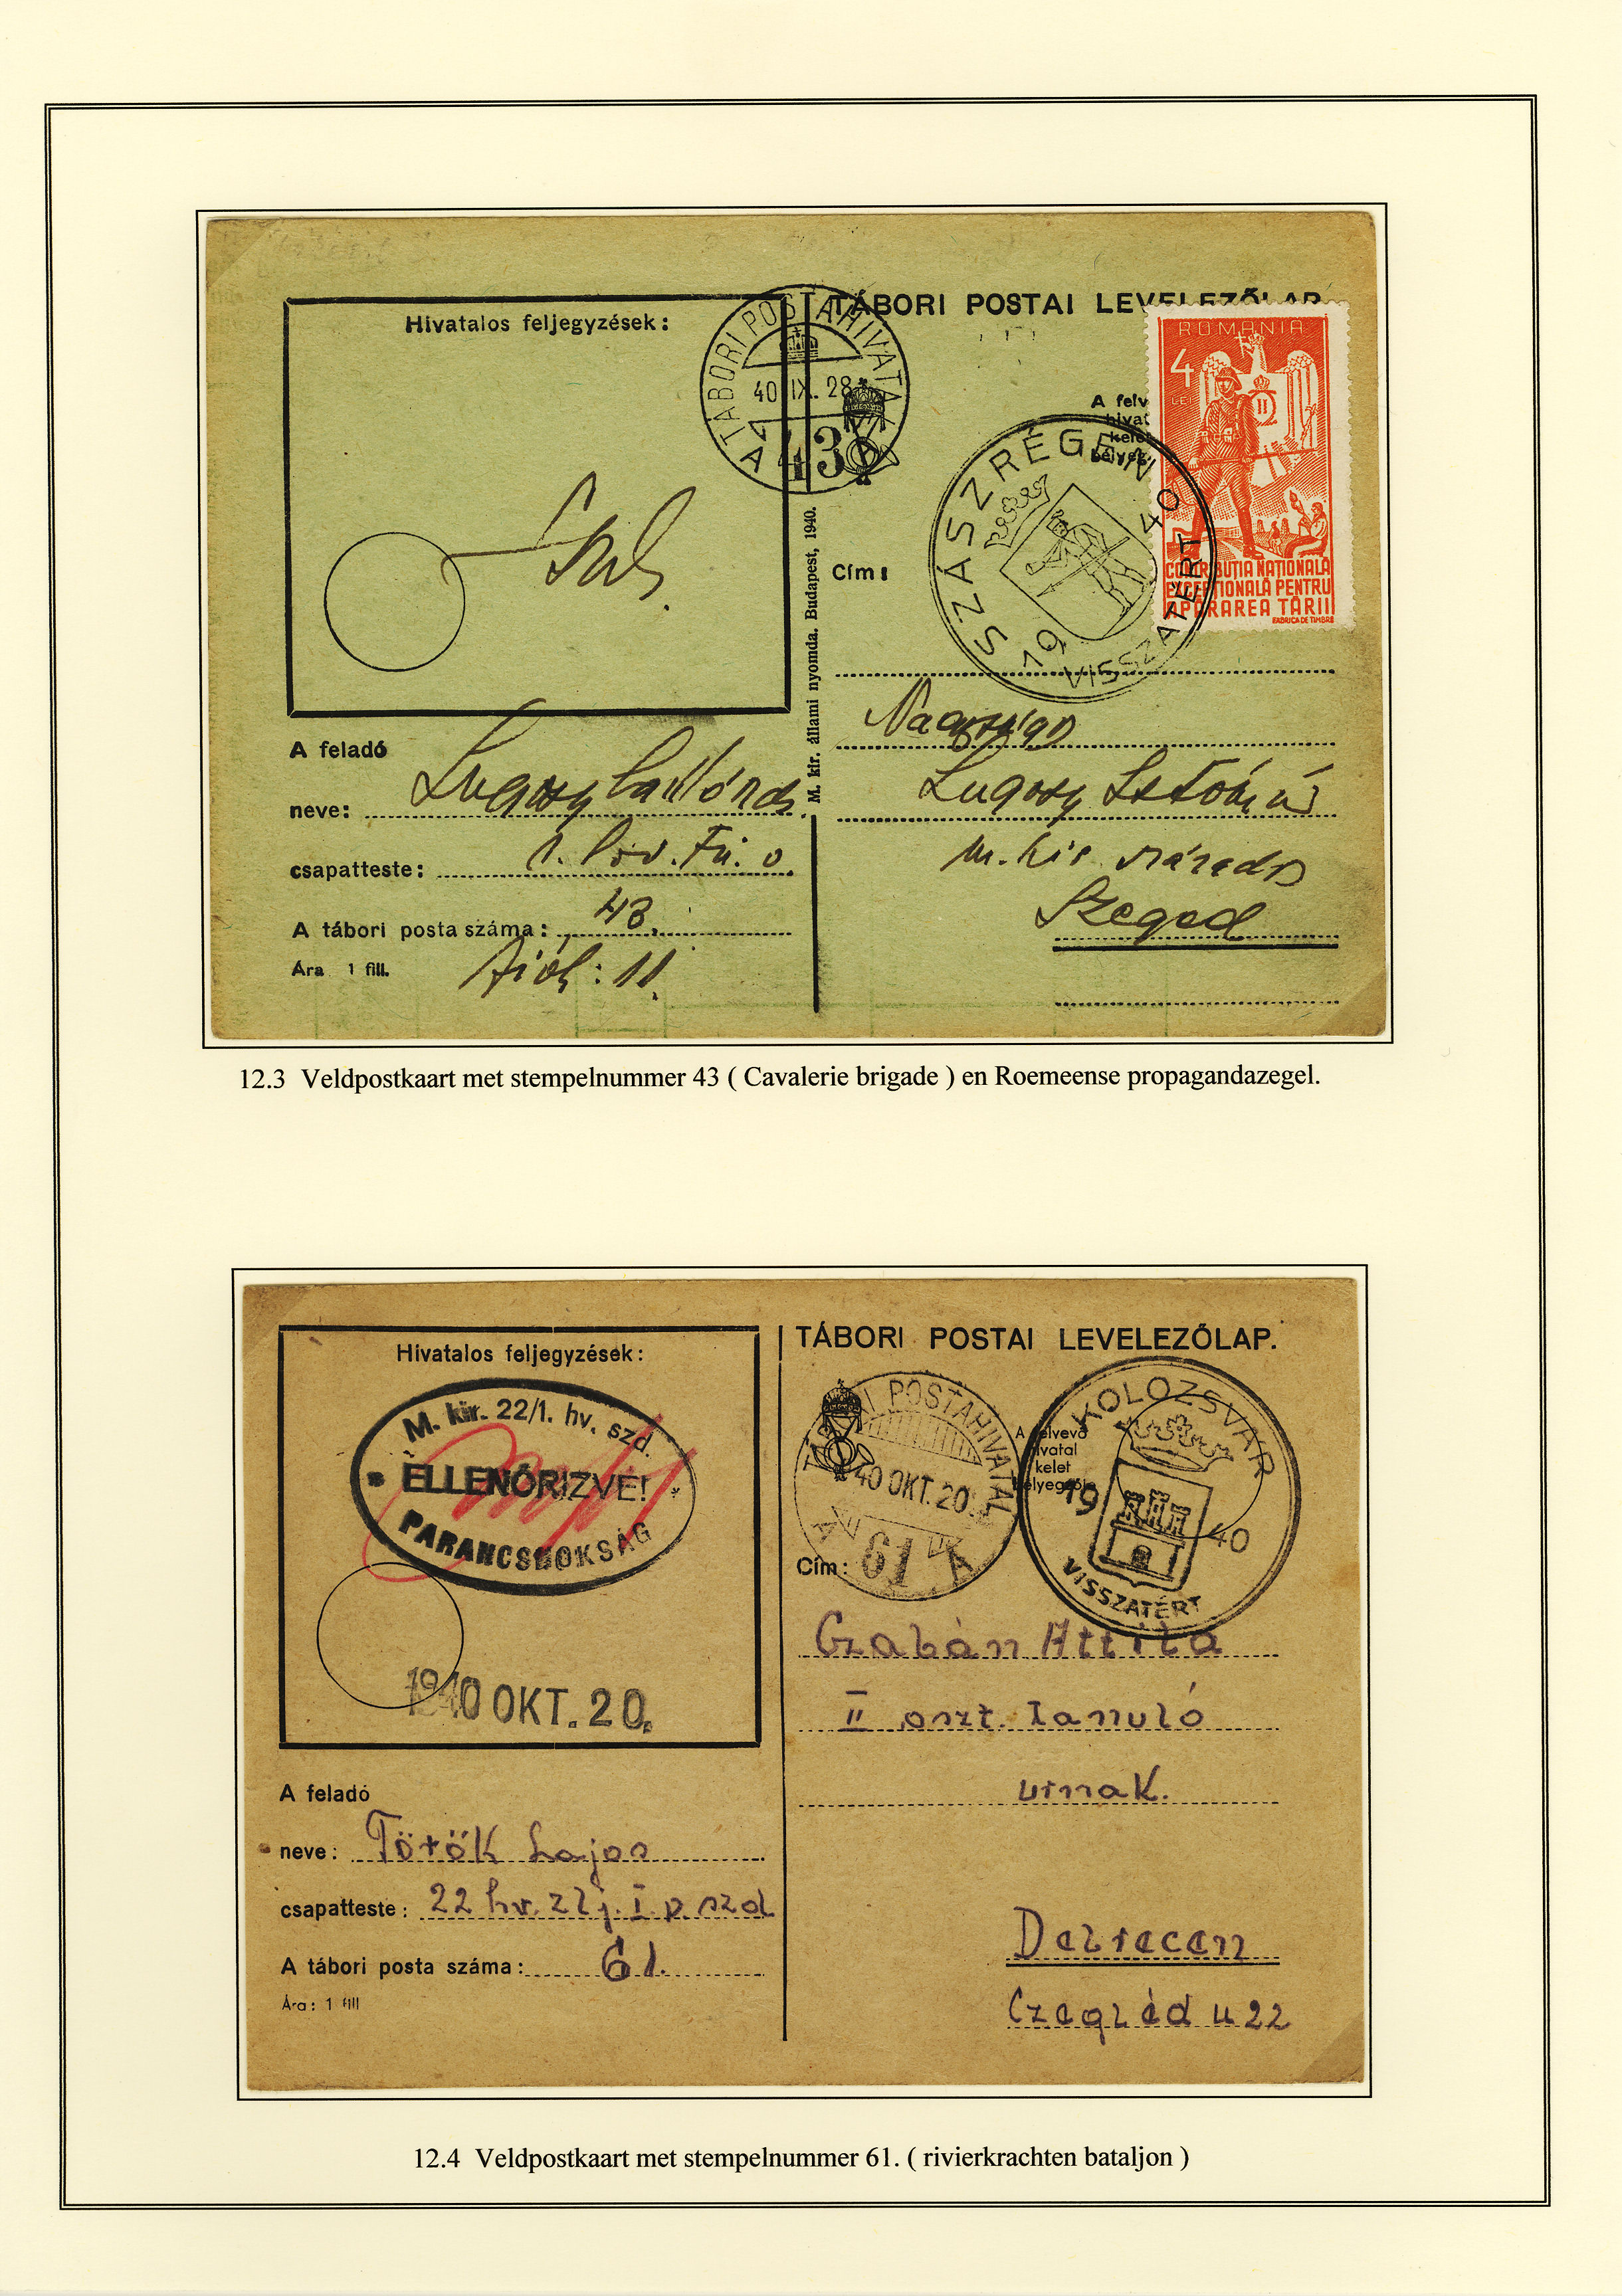 Hivatalos feljegyzések:
TÁBORI POSTAHIVATAL
40 IX. 28
A 43 A
TÁBORI POSTAI LEVELEZŐLAP
A felv
hivat
kelet
bélyeg
ROMANIA
4
LEI
II
CONTRIBUTIA NATIONALĂ
EXCEPTIONALĂ PENTRU
APĂRAREA TĂRII
FABRICA DE TIMBRE
SZÁSZRÉGEN
19 40
VISSZATÉRT
Cím:
M. kir. állami nyomda. Budapest, 1940.
A feladó
neve: Lugosy
csapatteste:
A tábori posta száma: 43.
Ára 1 fill.
: 11.
Nagys
Lugosy
m. kir.
Szeged
12.3 Veldpostkaart met stempelnummer 43 ( Cavalerie brigade ) en Roemeense propagandazegel.
Hivatalos feljegyzések:
M. kir. 22/1. hv. szd.
ELLENŐRIZVE!
PARANCSNOKSÁG
1940 OKT. 20.
TÁBORI POSTAI LEVELEZŐLAP.
TÁBORI POSTAHIVATAL
40 OKT. 20.
A 61 A
A felvevő
hivatal
kelet
bélyegzője
KOLOZSVÁR
19 40
VISSZATÉRT
Cím:
Czabán Attila
II oszt. tanuló
urnak.
A feladó
neve: Török Lajos
csapatteste: 22 hv. zlj. I. p. szd
A tábori posta száma: 61.
Ára: 1 fill
Debrecen
Czegléd u 22
12.4 Veldpostkaart met stempelnummer 61. ( rivierkrachten bataljon )